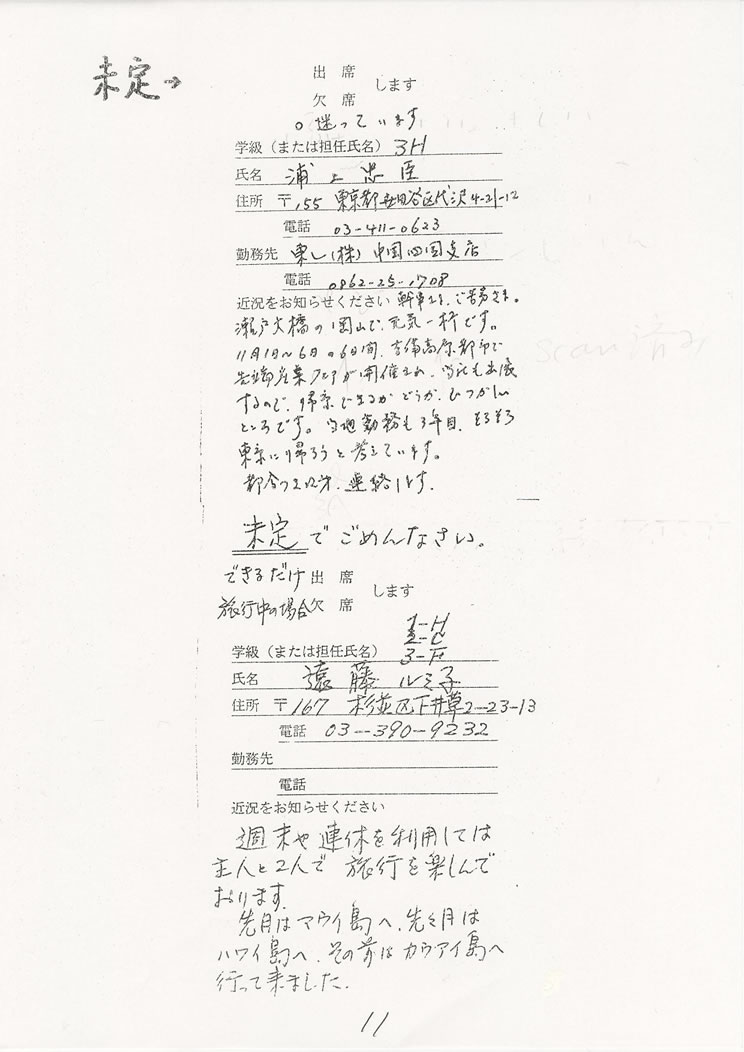 未定→
出席
欠席 します
○迷っています
学級（または担任氏名） 3H
氏名 浦上忠臣
住所 〒155 東京都世田谷区代沢4-21-12
電話 03-411-0623
勤務先 東レ(株) 中国四国支店
電話 0862-25-1708
近況をお知らせください 幹事さん、ご苦労さま。
瀬戸大橋の岡山で、元気一杯です。
11月1日〜6日の6日間、吉備高原都市で
先端産業フェアが開催され、当社も出展
するので、帰京できるかどうか、むつかしい
ところです。当地勤務も3年目、そろそろ
東京に帰ろうと考えています。
都合つき次第、連絡します。
未定でごめんなさい。
できるだけ 出席
旅行中の場合 欠席 します
1-H
2-C
学級（または担任氏名） 3-F
氏名 遠藤ルミ子
住所 〒167 杉並区下井草2-23-13
電話 03-390-9232
勤務先
電話
近況をお知らせください
週末や連休を利用しては
主人と2人で旅行を楽しんで
おります。
先月はマウイ島へ、先々月は
ハワイ島へ、その前はカウアイ島へ
行って来ました。
11